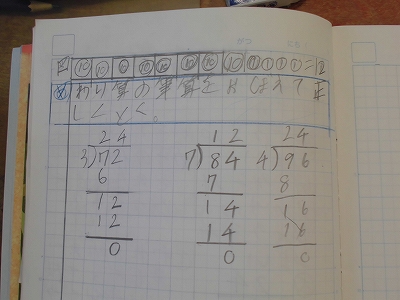 わり算の筆算をおぼえて正
しくとく。
24
3)72
6
12
12
0
12
7)84
7
14
14
0
24
4)96
8
16
16
0